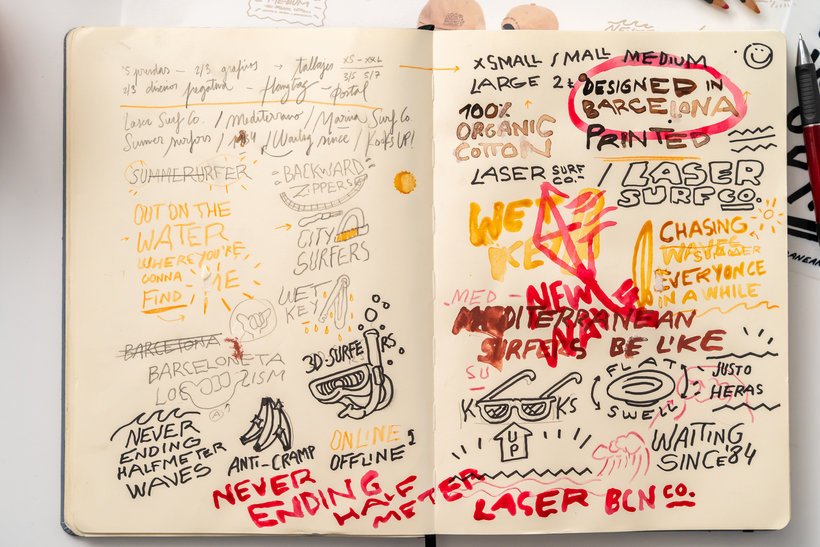 5 prendas — 2/3 grafios → tallajes XS - XXL
3/5 5/7
2/3 diseños pegatina — flongbag — Postal
Laser Surf Co. / mediterraneo / Marina Surf Co
Summer surfers / 1984 / Waiting since / Kooks UP!
SUMMERSURFER
BACKWARD
ZIPPERS
OUT ON THE
WATER
WHERE YOU'RE
GONNA ME
FIND
CITY
SURFERS
WET
KEY
BARCELONA
BARCELONETA
LO ISM
3D-SURFERS
NEVER
ENDING
HALFMETER
WAVES
ANTI-CRAMP
ONLINE
OFFLINE
NEVER
ENDING HALF
METER
XSMALL SMALL MEDIUM
LARGE
DESIGNED IN
BARCELONA
PRINTED
100%
ORGANIC
COTTON
LASER SURF CO. / LASER
SURF CO.
WET
KEY
CHASING
WAVES SUMMER
EVERYONCE
IN A WHILE
MED - NEW
MEDITERRANEAN
SURFERS BE LIKE
SU
KOOKS
FLAT
SWELL
JUSTO
HERAS
UP
WAITING
SINCE '84
LASER BCN CO.